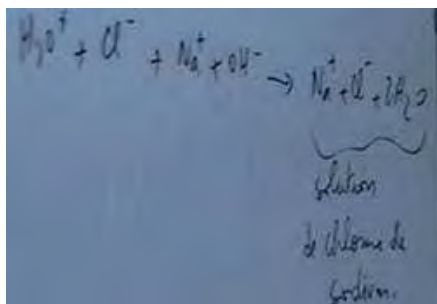 H₃O⁺ + Cl⁻ + Na⁺ + OH⁻ → Na⁺ + Cl⁻ + 2H₂O
solution
de chlorure de
sodium.